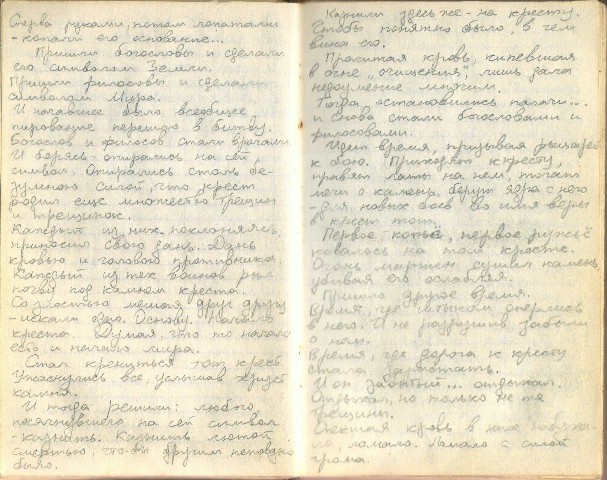 Сперва руками, потом лопатами
- копали его основание...
Пришли богословы и сделали
его символом Земли.
Пришли философы и сделали
символом Мира.
И начавшее было всеобщее
пирование перешло в битву.
Богослов и философ стали врагами.
И борясь - опирались на сей
символ. Опирались столь бе-
зумною силой, что крест
родил еще множество трещин
и трещинок.
Каждый из них поклонялся,
приносил свою дань. Дань
кровью и головой противника.
Каждый из тех воинов рыл
почву под камнем креста.
Со злостью мешая друг другу
- искали дно. Основу. Начало
креста. Думая, что то начало
есть и начало мира.
Стал крениться тот крест
Ужаснулись все, услышав хруст
камня.
И тогда решили: любого
посягнувшего на сей символ
- казнить. Казнить лютой
смертью, что-бы другим неповадно
было.
Казнили здесь же - на кресту.
Чтобы понятно было, в чем
вина его.
Пролитая кровь, кипевшая
в огне „очищения", лишь дала
недоумение многим.
Тогда остановились палачи...
и снова стали богословами и
философами.
Идет время, призывая рыцарей
к бою. Приходят к кресту,
правят латы на нем, точат
мечи о камень, берут ядра с него
для новых боев во имя веры
в крест тот.
Первое копьё, первое ружьё
ковалось на том кресте.
Огонь сушил камень,
убивая его ослабляя.
Пришло другое время.
Время, где штыком оперлись
в него. И не разрушив забыли
о нем.
Время, где дорога к кресту
стала зарастать.
И он забытый... отдыхал.
Отдыхал, но только не те
трещины.
кровь в них
ла, ломало. Ломало с силой
грома.